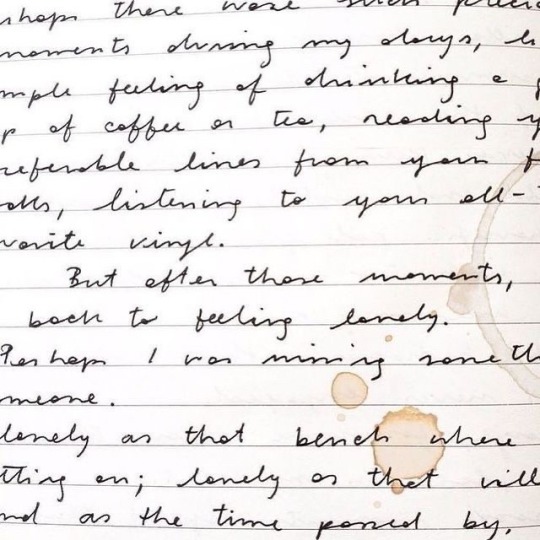 rhaps there were such preci
moments during my days, li
mple feeling of drinking a g
p of coffee or tea, reading y
referable lines from your f
ooks, listening to your all-
vorite vinyl.
But after those moments,
back to feeling lonely.
Perhaps I was missing someth
omeone.
lonely as that bench where
tting on; lonely as that vill
nd as the time passed by,